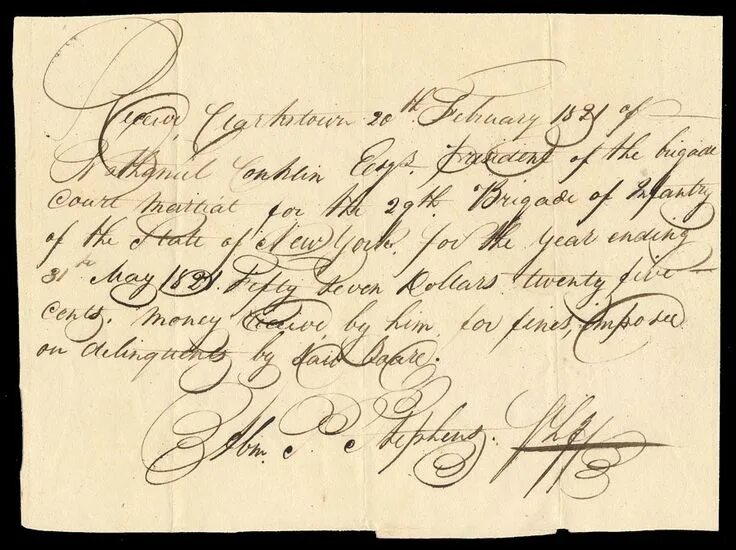 Receivd Clarkstown 20th February 1821 of
Nathaniel Conklin Esqr. President of the brigade
Court Martial for the 29th Brigade of Infantry
of the State of New York for the year ending
31st May 1821. Fifty Seven Dollars twenty five
cents, money Receivd by him for fines, imposed
on delinquents by Said Court.
Abm. P. Stephens.